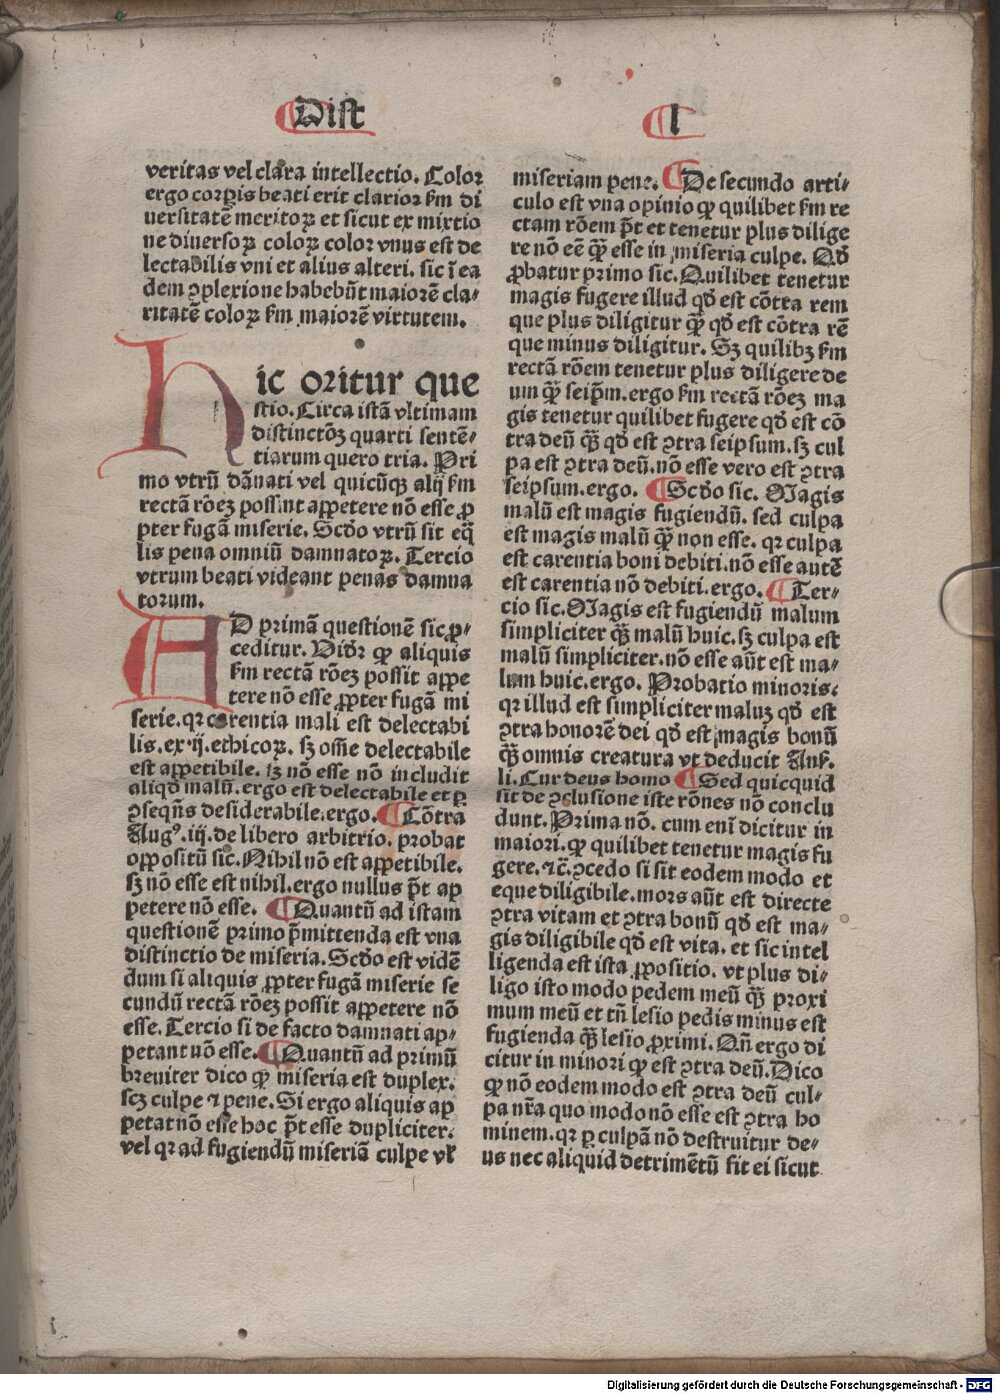 Dist
I
veritas vel clara intellectio. Color
ergo corꝑis beati erit clarior ẜm di
uersitatē meritoꝝ et sicut ex mixtio
ne diuersoꝝ coloꝝ color vnus est de
lectabilis vni et alius alteri. sic ī ea
dem ꝯplexione habebūt maiorē cla-
ritatē coloꝝ ẜm maiorē virtutem.
Hic oritur que
stio. Circa istā vltimam
distinctōꝫ quarti sentē-
tiarum quero tria. Pri
mo vtrū dānati vel quicūqꝫ alij ẜm
rectā rōeꝫ possint appetere nō esse ꝓ
pter fugā miserie. Scd̓o vtrū sit eq̄
lis pena omniū damnatoꝝ. Tercio
vtrum beati videant penas damna
torum.
AD primā questionē sic ꝓ-
ceditur. Vid̓r ꝙ aliquis
ẜm rectā rōeꝫ possit appe
tere nō esse ꝓpter fugā mi
serie. qꝛ carentia mali est delectabi
lis. ex .ij. ethicoꝝ. sꝫ om̄e delectabile
est appetibile. sꝫ nō esse nō includit
aliqd̓ malū. ergo est delectabile et ꝑ
ꝯseqn̄s desiderabile. ergo. ¶ Cōtra
Augꝰ. iij. de libero arbitrio. probat
oppositū sic. Nihil nō est appetibile.
sꝫ nō esse est nihil. ergo nullus p̄t ap
petere nō esse. ¶ Quantū ad istam
questionē primo p̄mittenda est vna
distinctio de miseria. Scd̓o est vidē
dum si aliquis ꝓpter fugā miserie se
cundū rectā rōeꝫ possit appetere nō
esse. Tercio si de facto damnati ap-
petant nō esse. ¶ Quantū ad primū
breuiter dico ꝙ miseria est duplex.
scꝫ culpe ⁊ pene. Si ergo aliquis ap
petat nō esse hoc p̄t esse dupliciter.
vel qꝛ ad fugiendū miseriā culpe vl̓
miseriam pene. ¶ De secundo arti-
culo est vna opinio ꝙ quilibet ẜm re
ctam rōem p̄t et tenetur plus dilige
re nō eē qȝ̄ esse in miseria culpe. Qd̓
ꝓbatur primo sic. Quilibet tenetur
magis fugere illud qd̓ est cōtra rem
que plus diligitur qȝ̄ qd̓ est cōtra rē
que minus diligitur. Sꝫ quilibꝫ ẜm
rectā rōem tenetur plus diligere de
um qȝ̄ seip̄m. ergo ẜm rectā rōeꝫ ma
gis tenetur quilibet fugere qd̓ est cō
tra deū qȝ̄ qd̓ est ꝯtra seipsum. sꝫ cul
pa est ꝯtra deū. nō esse vero est ꝯtra
seipsum. ergo. ¶ Scd̓o sic. Magis
malū est magis fugiendū. sed culpa
est magis malū qȝ̄ non esse. qꝛ culpa
est carentia boni debiti. nō esse autē
est carentia nō debiti. ergo. ¶ Ter-
cio sic. Magis est fugiendū malum
simpliciter qȝ̄ malū huic. sꝫ culpa est
malū simpliciter. nō esse aūt est ma-
lum huic. ergo. Probatio minoris.
qꝛ illud est simpliciter maluꝫ qd̓ est
ꝯtra honorē dei qd̓ est magis bonū
qȝ̄ omnis creatura vt deducit Ansẜ.
li. Cur deus homo ¶ Sed quicquid
sit de ꝯclusione iste rōnes nō conclu
dunt. Prima nō. cum eni̅ dicitur in
maiori. ꝙ quilibet tenetur magis fu
gere. ⁊c̄. ꝯcedo si sit eodem modo et
eque diligibile. mors aūt est directe
ꝯtra vitam et ꝯtra bonū qd̓ est ma-
gis diligibile qd̓ est vita. et sic intel
ligenda est ista ꝓpositio. vt plus di-
ligo isto modo pedem meū qȝ̄ proxi
mum meū et tn̄ lesio pedis minus est
fugienda qȝ̄ lesio ꝓximi. Qn̄ ergo di
citur in minori ꝙ est ꝯtra deū. Dico
ꝙ nō eodem modo est ꝯtra deū cul-
pa nr̄a quo modo nō esse est ꝯtra ho
minem. qꝛ ꝑ culpā nō destruitur de-
us nec aliquid detrimētū fit ei sicut
Digitalisierung gefördert durch die Deutsche Forschungsgemeinschaft - DFG